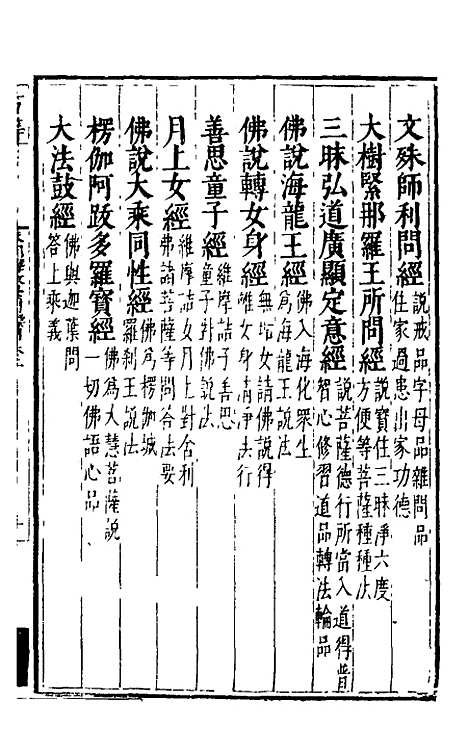 文殊師利問經 說戒品字母品雜問品
住家過患出家功德
大樹緊那羅王所問經 說寶住三昧淨六度
方便等菩薩種種法
三昧弘道廣顯定意經 說菩薩德行所當入道得普
智心修習道品轉法輪品
佛說海龍王經 佛入海化衆生
爲海龍王說法
佛說轉女身經 無垢女請佛說得
離女身清淨法行
善思童子經 維摩詰子善思
童子對佛說法
月上女經 維摩詰女月上對舍利
弗諸菩薩等問答法要
佛說大乘同性經 佛爲楞伽城
羅刹王說法
楞伽阿跋多羅寶經 佛爲大慧菩薩說
一切佛語心品
大法鼓經 佛與迦葉問
答上乘義